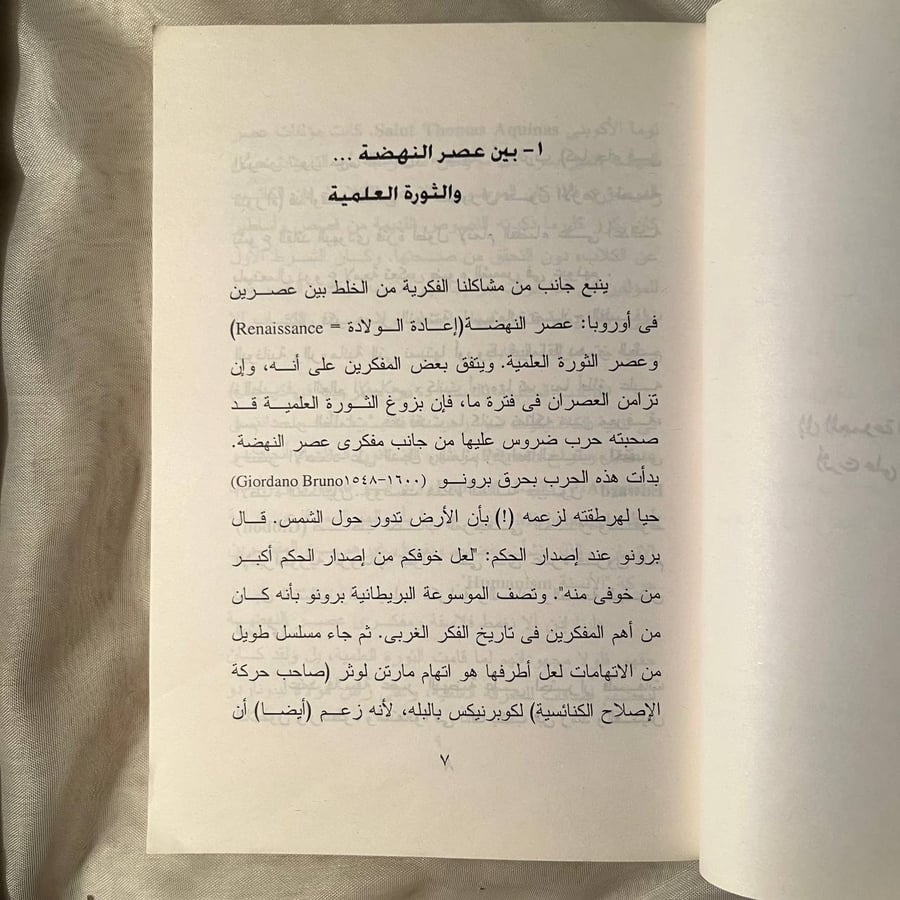 ١- بين عصر النهضة ...
والثورة العلمية
ينبع جانب من مشاكلنا الفكرية من الخلط بين عصرين
فى أوروبا: عصر النهضة(إعادة الولادة = Renaissance)
وعصر الثورة العلمية. ويتفق بعض المفكرين على أنه، وإن
تزامن العصران فى فترة ما، فإن بزوغ الثورة العلمية قد
صحبته حرب ضروس عليها من جانب مفكرى عصر النهضة.
بدأت هذه الحرب بحرق برونو (Giordano Bruno١٥٤٨-١٦٠٠)
حيا لهرطقته لزعمه (!) بأن الأرض تدور حول الشمس. قال
برونو عند إصدار الحكم: "لعل خوفكم من إصدار الحكم أكبر
من خوفى منه". وتصف الموسوعة البريطانية برونو بأنه كان
من أهم المفكرين فى تاريخ الفكر الغربى. ثم جاء مسلسل طويل
من الاتهامات لعل أطرفها هو اتهام مارتن لوثر (صاحب حركة
الإصلاح الكنائسية) لكوبرنيكس بالبله، لأنه زعم (أيضا) أن
٧